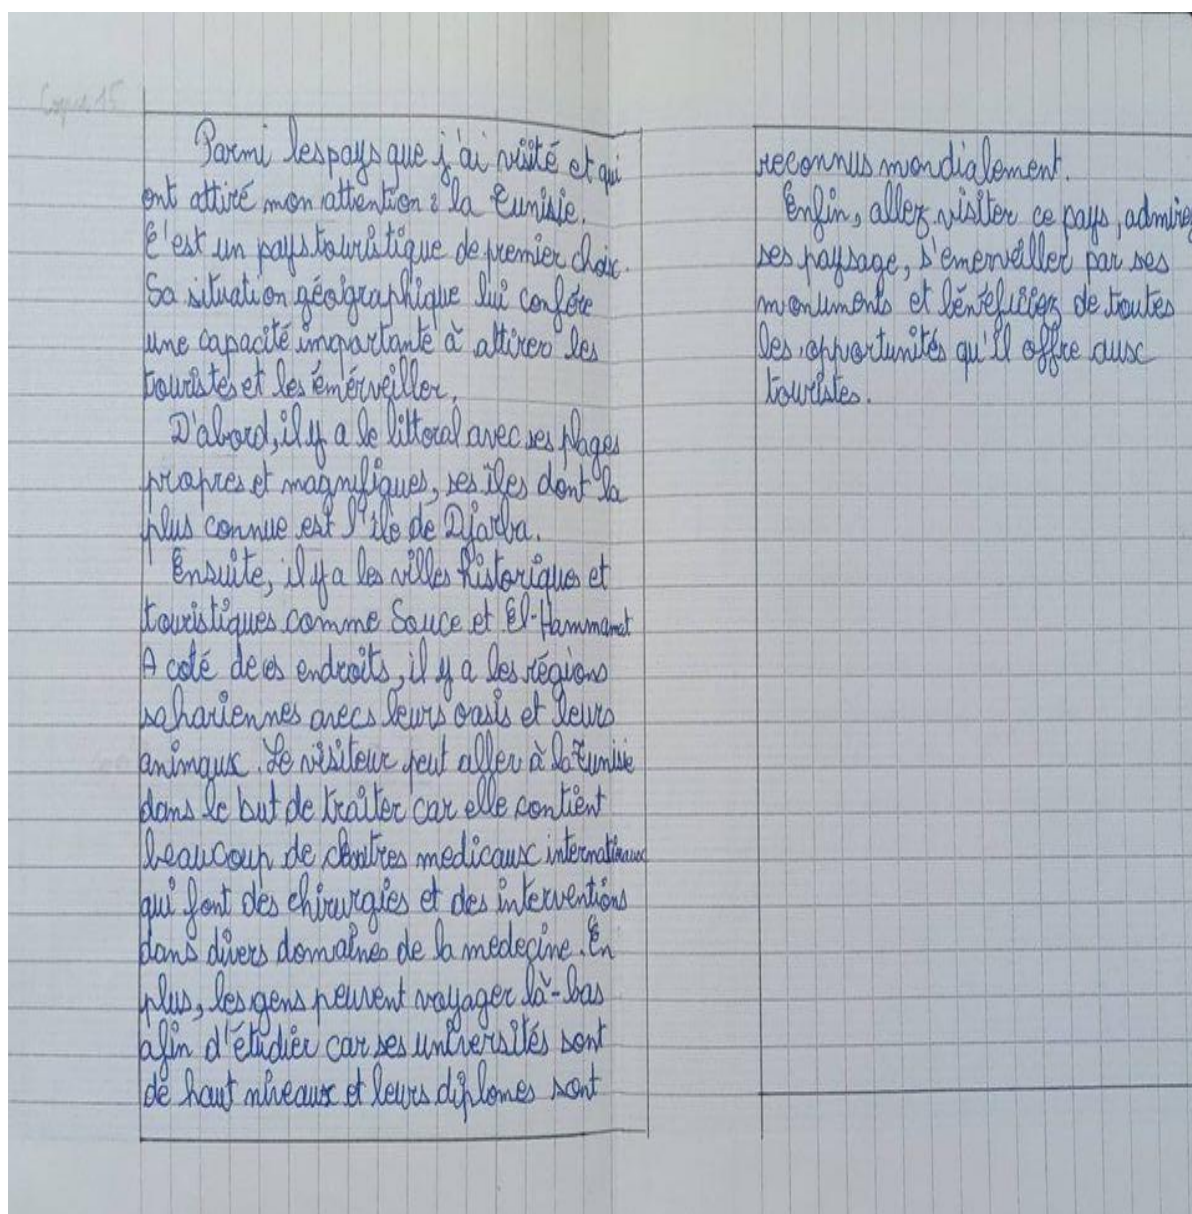 Copie 15
Parmi les pays que j'ai visité et qui
ont attiré mon attention : la Tunisie.
C'est un pays touristique de premier choix.
Sa situation géographique lui confére
une capacité importante à attirer les
touristes et les émérveiller.
D'abord, il y a le littoral avec ses plages
propres et magnifiques, ses îles dont la
plus connue est l'île de Djarba.
Ensuite, il y a les villes historiques et
touristiques comme Souce et El-Hammamet
A coté de ces endroits, il y a les régions
sahariennes avecs leurs oasis et leurs
animaux. Le visiteur peut aller à la Tunisie
dans le but de traiter car elle contient
beaucoup de centres medicaux internationaux
qui font des chirurgies et des interventions
dans divers domaines de la medecine. En
plus, les gens peuvent voyager là-bas
afin d'étudier car ses universités sont
de haut niveaux et leurs diplomes sont
reconnus mondialement.
Enfin, allez visiter ce pays, admirez
ses paysage, s'emerveiller par ses
monuments et bénéficiez de toutes
les opportunités qu'il offre aux
touristes.